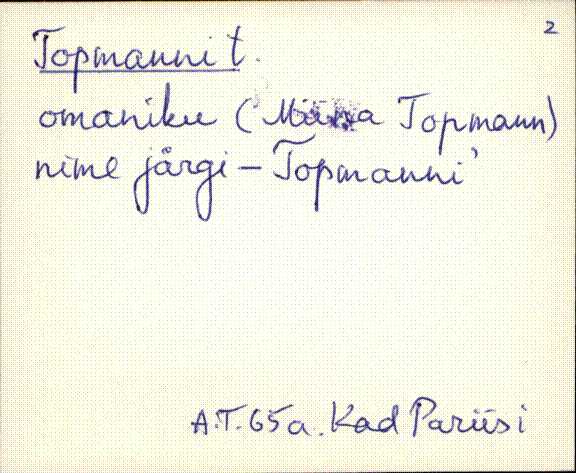 2
Topmanni t.
omaniku (Miina Topmann)
nime järgi – Topmanni'
A.T. 65 a. Kad Pariisi